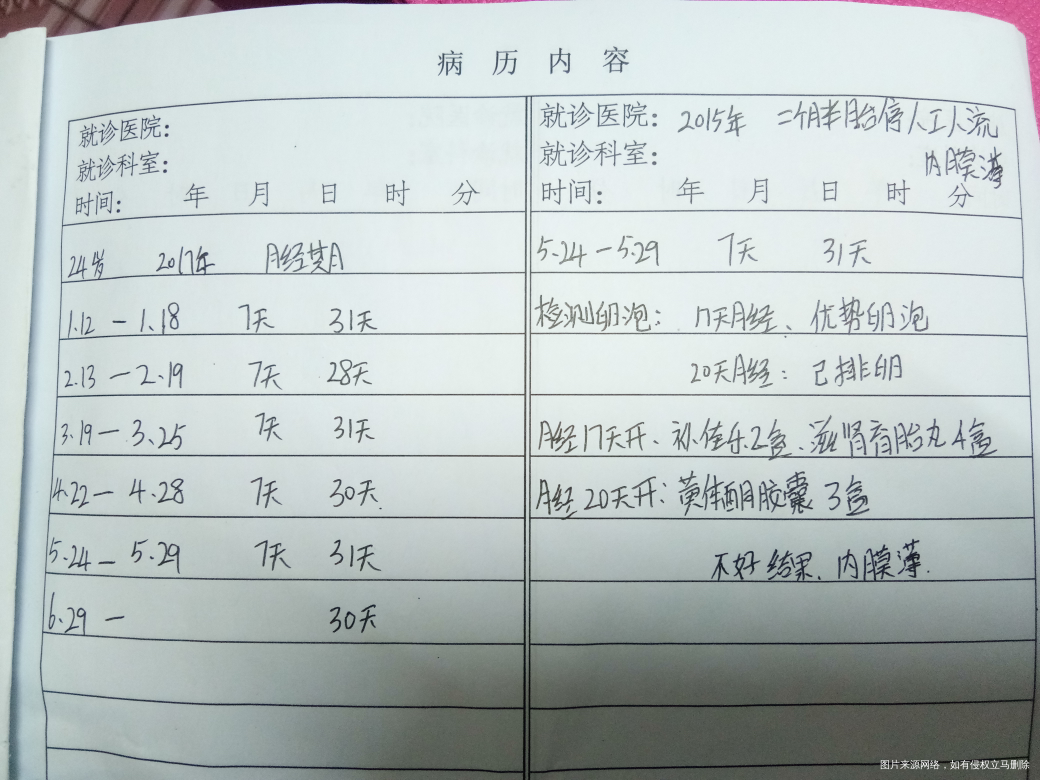 病 历 内 容
就诊医院:
就诊科室:
时间: 年 月 日 时 分
24岁 2017年 月经期
1.12 — 1.18 7天 31天
2.13 — 2.19 7天 28天
3.19 — 3.25 7天 31天
4.22 — 4.28 7天 30天
5.24 — 5.29 7天 31天
6.29 — 30天
就诊医院: 2015年 二个月半胎停人工人流
就诊科室: 内膜薄
时间: 年 月 日 时 分
5.24 — 5.29 7天 31天
检测卵泡: 17天月经、优势卵泡
20天月经: 已排卵
月经17天开、补佳乐2盒、滋肾育胎丸4盒
月经20天开: 黄体酮胶囊 3盒
不好结果、内膜薄.
图片来源网络,如有侵权立马删除